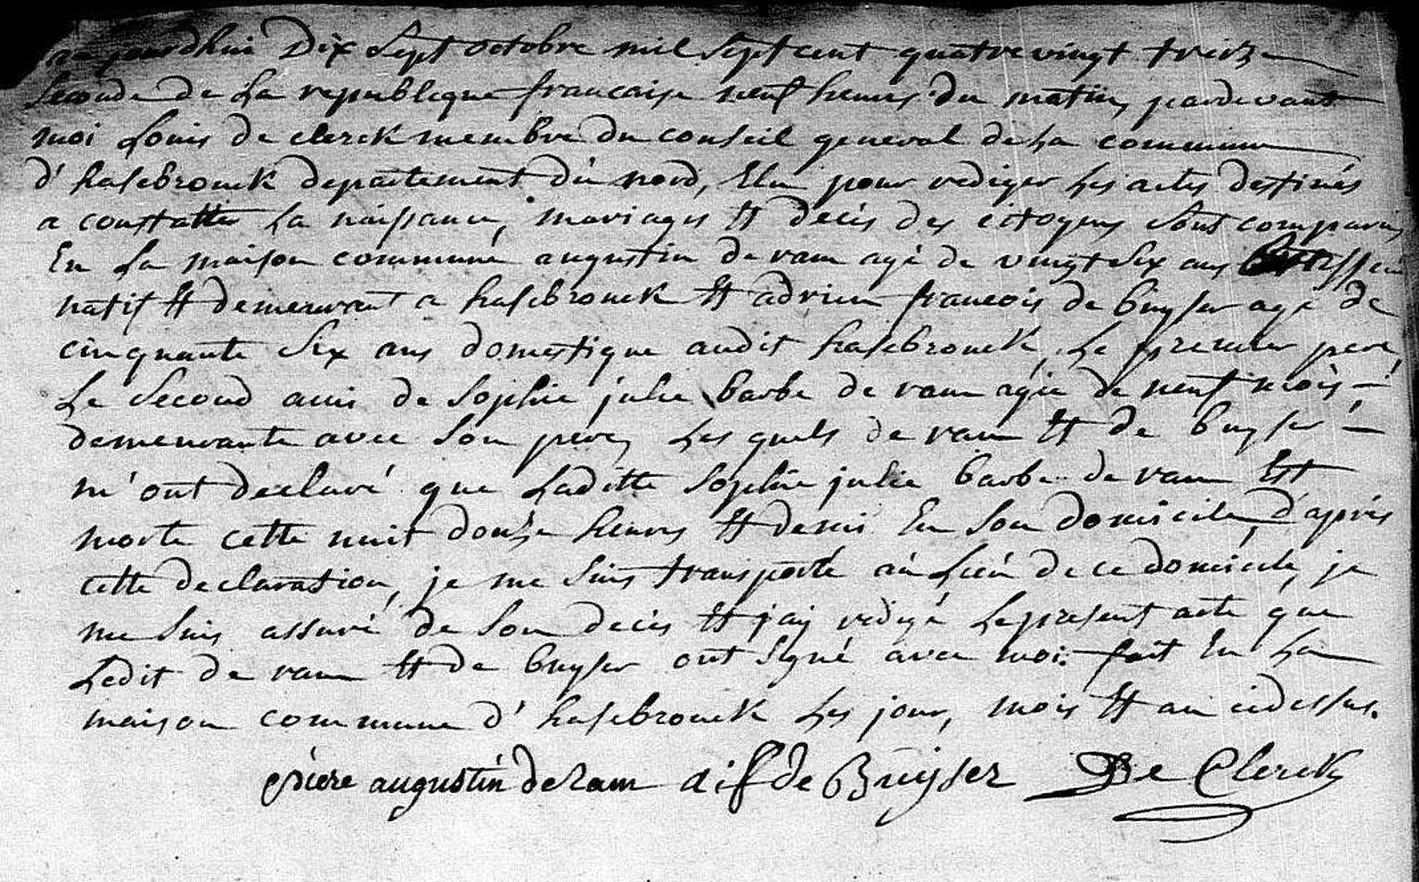 aujourdhui Dix Sept octobre mil Sept cent quatre vingt treize
Seconde de La republique francaise neuf heures du matin, pardevant
moi Louis de clerck membre du conseil general de La commune
d'hasebrouck departement du nord, Elu pour rediger Les actes destinés
a constatter La naissance, mariages Et decès des citoyens Sont comparus
En La maison commune augustin de ram agé de vingt Six ans
natif Et demeurant a hasebrouck Et adrien francois de buyser agé de
cinquante Six ans domestique audit hasebrouck, Le premier pere,
Le Second ami de Sophie julie barbe de ram agée de neuf mois
demeurante avec Son pere, Les quels de ram Et de buyser
m'ont declaré que Laditte Sophie julie barbe de ram Est
morte cette nuit douze heures Et demis En Son domicile, d'après
cette declaration, je me Suis transporté au Lieu de ce domicile, je
me Suis assuré de Son decès Et j'ai redigé Le present acte que
Ledit de ram Et de buyser ont Signé avec moi. fait En La
maison commune d'hasebrouck Les jour, mois Et an cidessus.
piere augustin de ram a i f de Buijser De Clerck